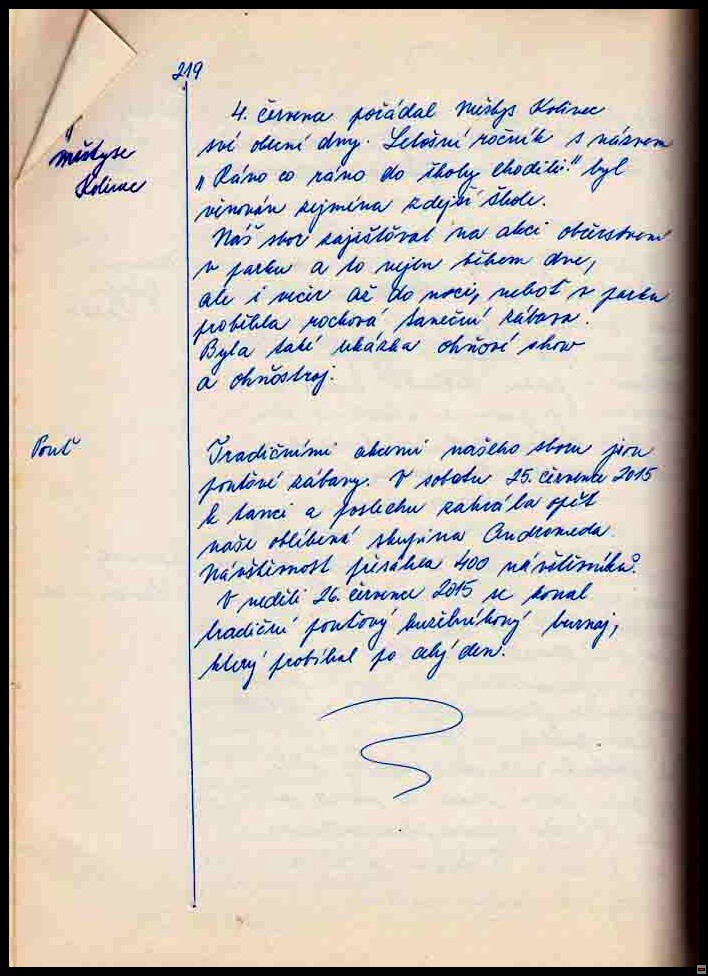 219
Městyse
Kolinec
4. června pořádal Městys Kolinec
své obecní dny. Letošní ročník s názvem
„Ráno co ráno do školy chodili" byl
věnován zejména zdejší škole.
Náš sbor zajišťoval na akci občerstvení
v parku a to nejen během dne,
ale i večer až do noci, neboť v parku
proběhla rocková taneční zábava.
Byla také ukázka ohňové show
a ohňostroj.
Pouť
Tradičními akcemi našeho sboru jsou
pouťové zábavy. V sobotu 25. července 2015
k tanci a poslechu zahrála opět
naše oblíbená skupina Andromeda.
Návštěvnost přesáhla 400 návštěvníků.
V neděli 26. července 2015 se konal
tradiční pouťový kuželkový turnaj,
který probíhal po celý den.